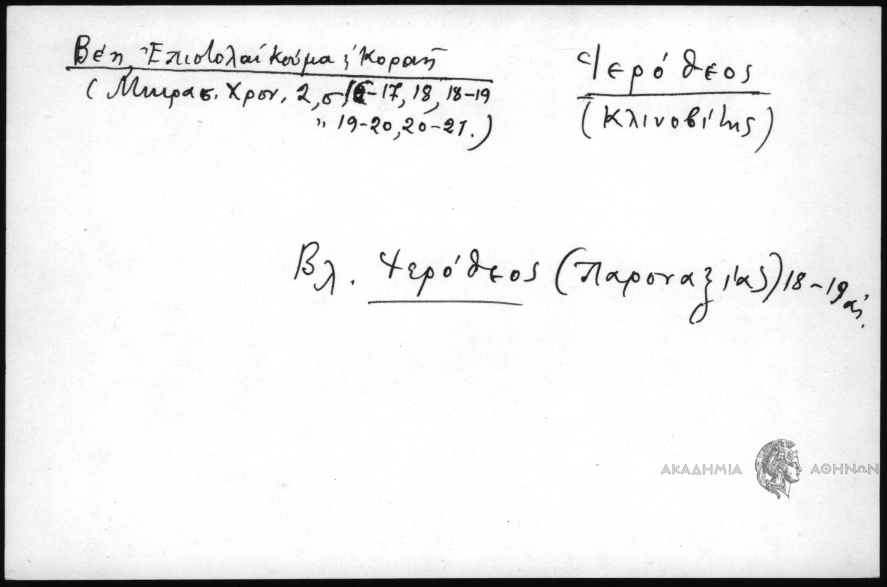 Βέη, Ἐπιστολαί Κούμα ἐ Κοραῆ
(Μικρασ. Χρον. 2, σ. 16-17, 18, 18-19
" 19-20, 20-21.)
Ἱερόθεος
(Κλινοβίτης)
Βλ. Ἱερόθεος (Παροναξίας) 18-19 αἰ.
ΑΚΑΔΗΜΙΑ ΑΘΗΝΩΝ